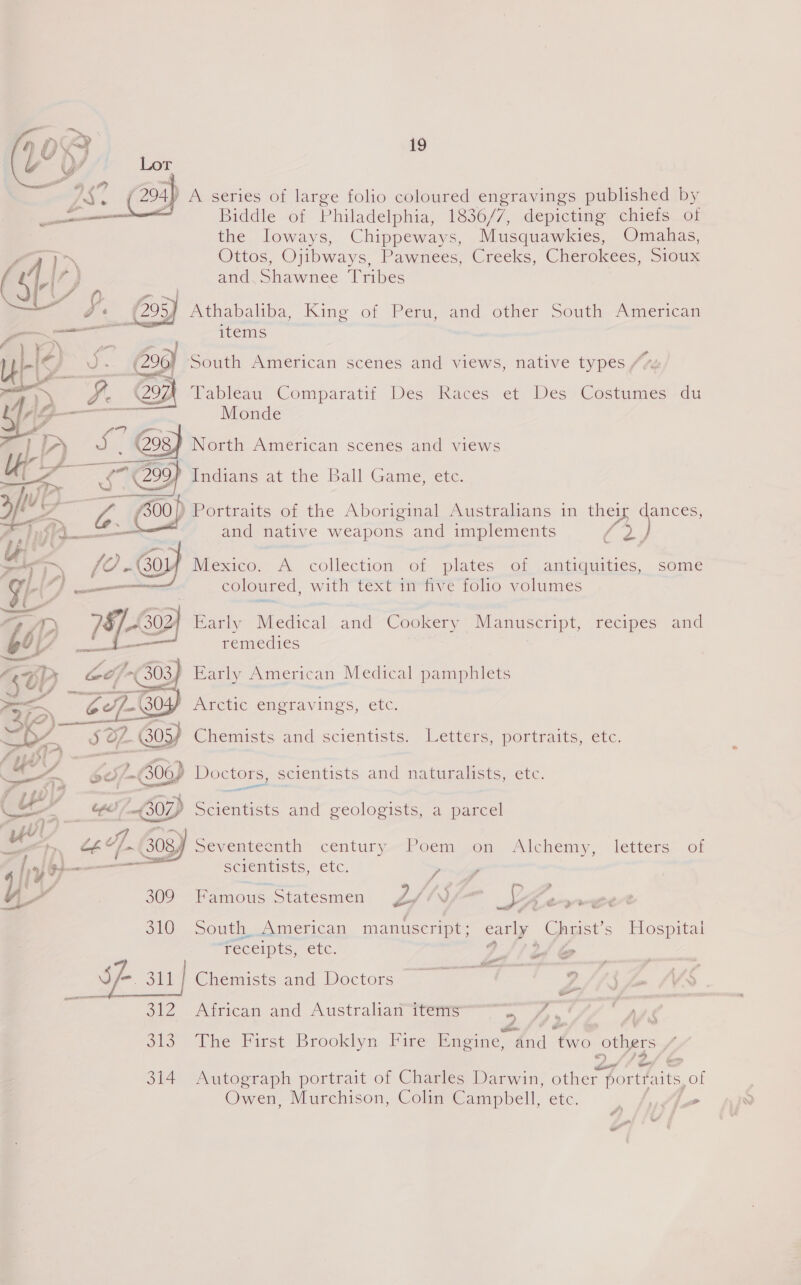 19
Lot
294 A series of large folio coloured engravings published by
Biddle of Philadelphia, 1836/7, depicting chiefs of
the Ioways, Chippeways, Musquawkies, Omahas,
Ottos, Ojibways, Pawnees, Creeks, Cherokees, Sioux
and Shawnee Tribes
295 Athabaliba, King of Peru, and other South American
items
296 South American scenes and views, native types
297 Tableau Comparatif Des Races et Des Costumes du
Monde
298 North American scenes and views
299 Indians at the Ball Game, etc.
300 Portraits of the Aboriginal Australians in their dances,
and native weapons and implements (2)
10.- 301 Mexico. A collection of plates of antiquities, some
coloured, with text in five folio volumes
302 Early Medical and Cookery Manuscript, recipes and
remedies
303 Early American Medical pamphlets
304 Arctic engravings, etc.
305 Chemists and scientists. Letters, portraits, etc.
306 Doctors, scientists and naturalists, etc.
307 Scientists and geologists, a parcel
308 Seventeenth century Poem on Alchemy, letters of
scientists, etc.
309 Famous Statesmen
310 South American manuscript; early Christ's Hospital
receipts, etc.
5/- 311 Chemists and Doctors
312 African and Australian items
313 The First Brooklyn Fire Engine, and two others
314 Autograph portrait of Charles Darwin, other portraits of
Owen, Murchison, Colin Campbell, etc.